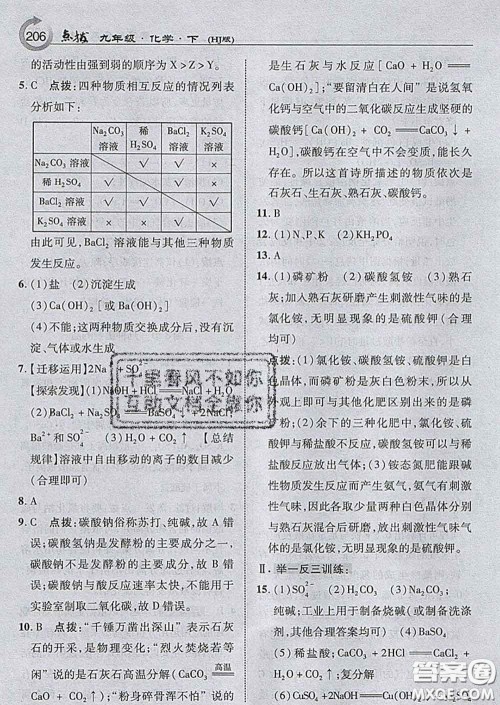 206 点拨 九年级·化学·下 (HJ版)
的活动性由强到弱的顺序为 X＞Z＞Y。
5. C 点拨：四种物质相互反应的情况列表
分析如下：
Na₂CO₃溶液 稀H₂SO₄ BaCl₂溶液 K₂SO₄溶液
Na₂CO₃溶液 √ √ ×
稀 H₂SO₄ √ √ ×
BaCl₂ 溶液 √ √ √
K₂SO₄ 溶液 × × √
由此可见，BaCl₂ 溶液能与其他三种物质
发生反应。
6. (1)盐 (2)沉淀生成
(3)Ca(OH)₂[或 Ba(OH)₂]
(4)不能；这两种物质交换成分后，没有沉
淀、气体或水生成
7. 【迁移运用】2Na⁺ SO
【探索发现】(1)NaOH
(2)BaCl₂＋Na₂SO₄ BaSO₄↓＋2NaCl
Ba²⁺和 SO₄²⁻ 【总结
规律】溶液中自由移动的离子的数目减少
(合理即可)
8. A
9. C 点拨：碳酸钠俗称苏打、纯碱，故 A 错
误；碳酸氢钠是发酵粉的主要成分之一，
碳酸钠不是发酵粉的主要成分，故 B 错
误；碳酸钠与酸反应速率太快，不能用于
实验室制取二氧化碳，故 D 错误。
10. B 点拨：“千锤万凿出深山”表示石灰
石的开采，是物理变化；“烈火焚烧若等
闲”说的是石灰石高温分解(CaCO₃ 高温
CaO＋CO₂↑)；“粉身碎骨浑不怕”说的
是生石灰与水反应[CaO＋H₂O══
Ca(OH)₂]；“要留清白在人间”是说氢氧
化钙与空气中的二氧化碳反应生成坚硬的
碳酸钙[Ca(OH)₂＋CO₂══CaCO₃↓＋
H₂O]，碳酸钙在空气中不会变质，能长久
存在。所以这首诗所描述的物质依次是
石灰石、生石灰、熟石灰、碳酸钙。
11. B
12. (1)N、P、K (2)KH₂PO₄
13. A
14. (1)磷矿粉 (2)碳酸氢铵 (3)熟石
灰；加入熟石灰研磨产生刺激性气味的是
氯化铵，无明显现象的是硫酸钾(合理
均可)
点拨：(1)氯化铵、碳酸氢铵、硫酸钾是白
色晶体，而磷矿粉是灰白色粉末，因此通
过物质的颜色可以将磷矿粉与其他物质
区分开。(2)余下的三种化肥中，只有碳
酸氢铵能与稀盐酸反应放出气体，氯化
铵、硫酸钾与稀盐酸不反应，因此可以根
据反应放出气体。(3)铵态氮肥能
与碱性物质反应而产生氨气，氨气有刺激
性气味，因此各取少量两种物质与熟石
灰混合后研磨，放出刺激性气味气
体的是氯化铵，无明显现象的是硫酸钾。
Ⅱ. 举一反三训练：
15. (1)SO₄²⁻
纯碱；工业上用于制备烧碱(或用于制造
玻璃、造纸等，合理即可) (4)BaSO₄
(5)稀盐酸；CaCO₃＋2HCl══CaCl₂＋
H₂O＋CO₂↑；复分解
(6)CuSO₄＋2NaOH══Cu(OH)₂↓＋
千里春风不如你
互助文档全靠你
答案圈
MXQE.COM